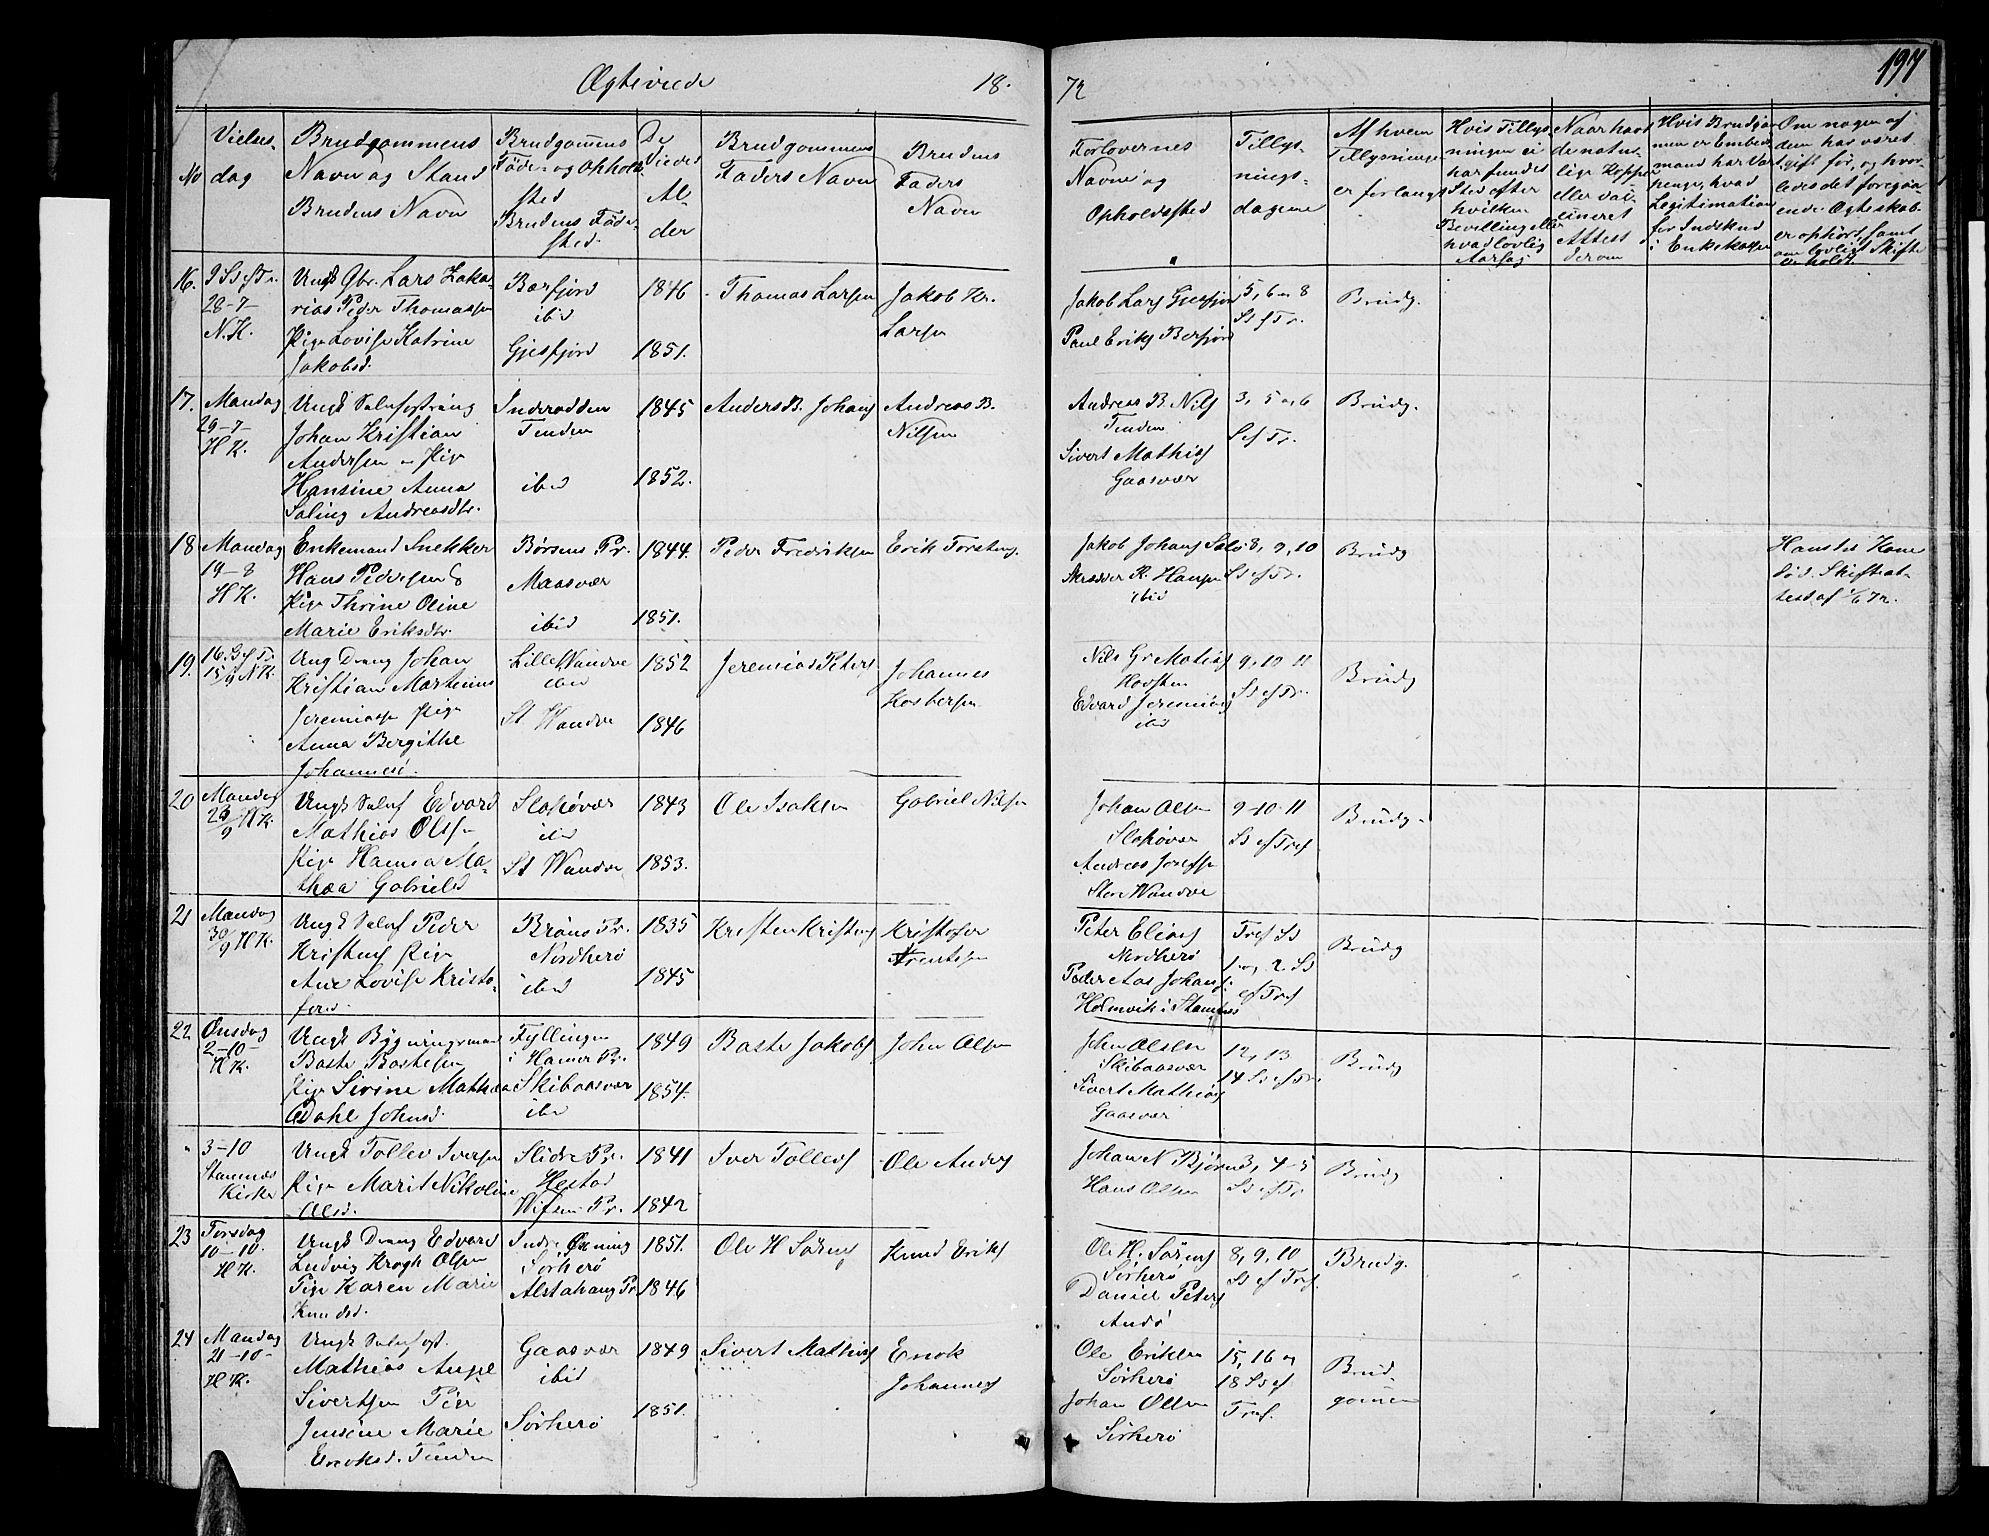 Ægteviede 18.
72
197
No
Vielses-
dag
Brudgommens
Navn og Stand
Brudens Navn
Brudgommens
Føde- og Opholds
sted
Brudens Føde-
sted.
De
Viedes
Al-
der
Brudgommens
Faders Navn
Brudens
Faders
Navn
Forlovernes
Navne og
Opholdssted
Tillys-
nings-
dagene
Af hvem
Tillysningen
er forlangt
Hvis Tillys
ningen ei
har fundet
Sted efter
hvilken
Bevilling eller
hvad lovlig
Aarsag
Naar havt
de natur-
lige Kopper
eller vac-
cineret
Attest
derom
Hvis Brudgom
men er Embeds
mand har Vart
penge, hvad
Legitimation
for Indskud
i Enkekassen
Om nogen af
dem har været
gift før, og hvor-
ledes det foregaa-
ende Ægteskab
er ophørt, samt
om lovligt Skifte
er holdt.
16.
28-7
N.K.
Ungk Gbr. Lars Zaka-
rias Peder Thomassen
Pige Lovise Katrine
Jakobsd.
Barfjord
ibid
Gjesfjord
1846
1851.
Thomas Larsen
Jakob Kr.
Larsen
Jakob Lars Gjesfjord
Paul Eriks Berfjord
5, 6 og 8
S. ef Tr.
Brudg.
17.
Mandag
29-7
HK.
Ungk
Johan Kristian
Andersen og Pige
Hansine Anna
Andreasdtr.
Inderodden
Tenden
ibid
1845
1852.
Anders B. Johans
Andreas B.
Nilsen
Andreas B. Nils
Tenden
Sivert Mathias
Gaasvær
3, 5 og 6
S ef Tr.
Brudg.
18
Mandag
19-8
HK.
Enkemand Snekker
Hans Pedersen &
Pige Thrine Oline
Marie Eriksdtr.
Børsens Pr.
Maasvær
ibid
1844.
1851.
Peder Fredriksen
Erik Torstens.
Jakob Johans
R. Hansen
ibid
8, 9, 10
S. ef Tr.
Brudg
Hans 1ste Kone
død. Skifteat-
test af 1/6 72.
19.
16. S. ef Tr.
15/9 NK.
Ung Dreng Johan
Kristian Martinus
Jeremiass Pige
Anna Bergithe
Johannesd.
Lille Wandve
ibid
St Wandve
1852
1846
Jeremias Peters
Johannes
Nils Gr Matias
Edvard Jeremias
ibid
9, 10 11
S. ef Tr.
Brudg
20
Mandag
HK
Ungk Edvard
Mathias Olsen
Pige Hanna Ma-
thea Gabrielsd
Slapøvær
ibid
St Wandve
1843
1853.
Ole Isaksen
Gabriel Nilsen
Johan Olsen
Slapøvær
Andreas Josefsen
Store Wandve
9-10-11
S. ef Tref
Brudg.
21
Mandag
30/9 HK.
Ungk Peder
Kristens Pige
Ane Lovise Kristo-
fersd.
Brønø Pr.
Nordherø
ibid
1835
1845
Kristen Kristens
Kristofer
Arentsen
Peter Elias
Nordherø
Peder Aas Johans.
Holmvik i Stamnes
Tref S.
1 og 2. S.
ef Tref
Brudg
22
Onsdag
2-10-
HK.
Ungk Bygningsmand
Baste Bastesen
Pige Sivine Mathea
Dahl Johnsd.
Fyllingen
i Hamer Pr.
Skibaasvær
ibid
1849
1854.
Baste Jakobs
John Olsen
John Olsen
Skibaasvær
Sivert Mathias
Gaasvær
12, 13
14 S. ef Tr.
Brudg
"
3-10
Stamnæs
Kirke
Ungk Tollev Iversen
Pige Marit Nikoline
Olsd.
Slidre Pr.
Hestad
Pr.
1841
1842
Iver Tollevs
Ole Anders
Johan N Bjørn
Hans Olsen
3, 4-5
S. ef Tr
Brudg
23
Torsdag
10-10.
HK.
Ungk Dreng Edvard
Ludvig Krogh Olsen
Pige Karen Marie
Knudsd.
Indre Øxning
Sørherø
Alstahaug Pr.
1851.
1846
Ole H Sørens
Knud Eriks
Ole H. Sørens
Sørherø
Daniel Peters
Andø
8, 9, 10
S. ef Tref.
Brudg.
24
Mandag
21-10-
HK.
Ungk
Mathias Angel
Sivertsen Pige
Jensine Marie
Enoksd. Tenden
Gaasvær
ibid
Sørherø
1849
1851.
Sivert Mathias
Enok
Johannes
Ole Eriksen
Sørherø
Johan Olsen
Sørherø
15, 16 og
18 S. ef
Tref.
Brud-
gommen